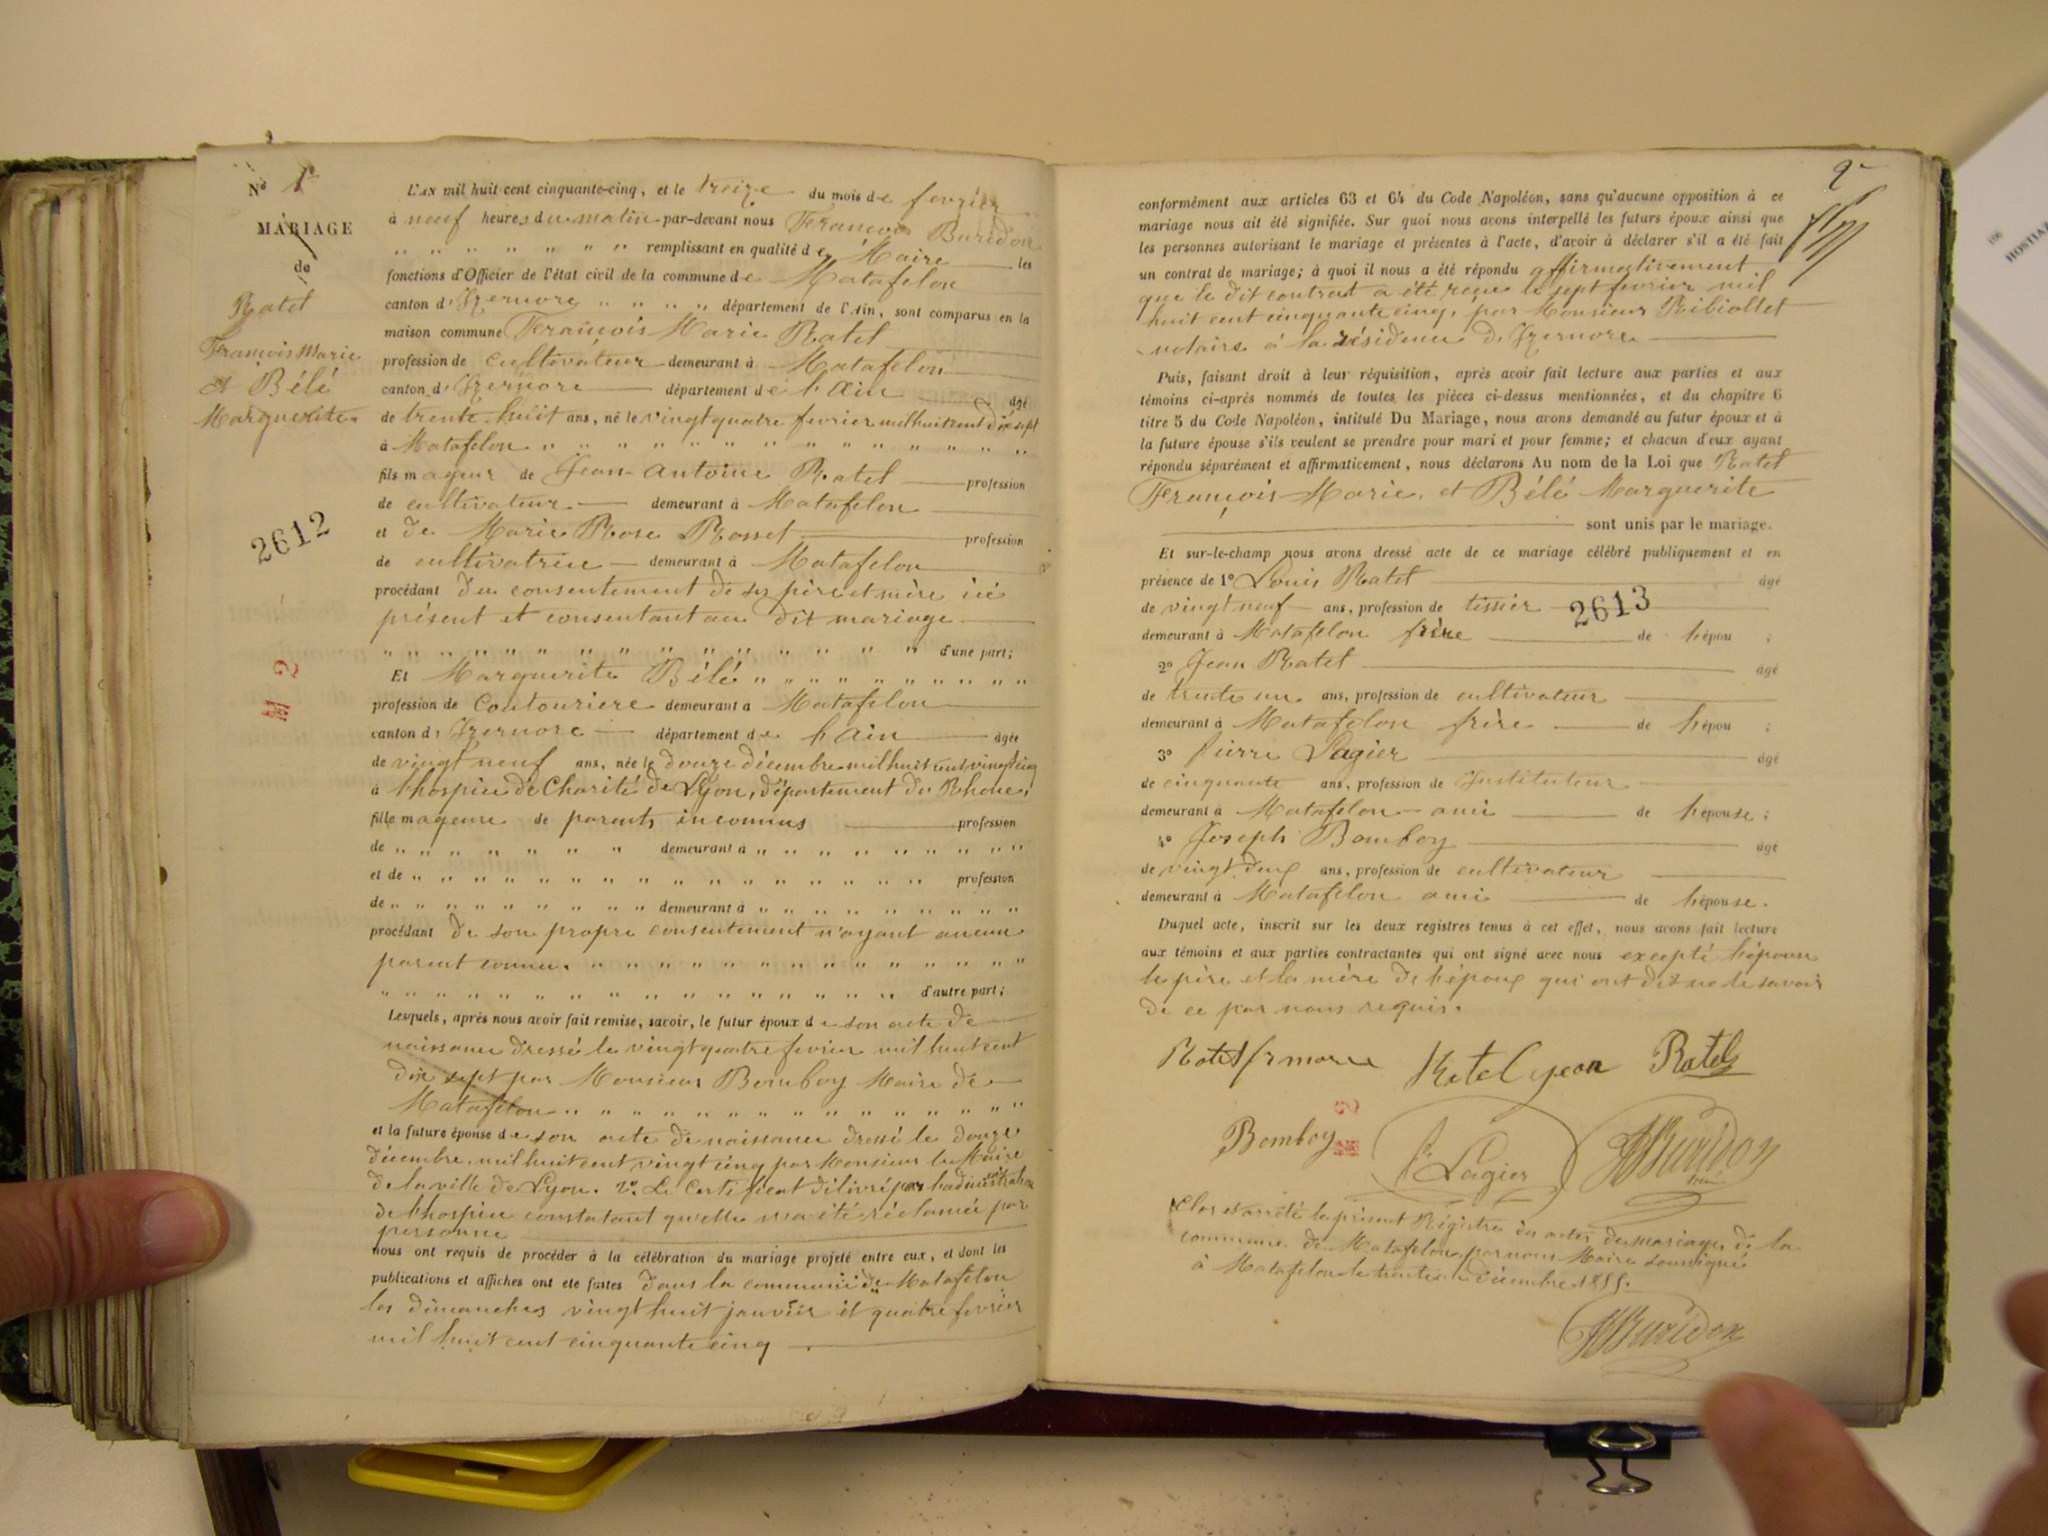 Nº 1er
MARIAGE
de
Ratel
François Marie
et Bélé
Marguerite.
2612
M 2
L'AN mil huit cent cinquante-cinq, et le treize du mois de fevrier
à neuf heures du matin par-devant nous François Buridon
" " " " " " " remplissant en qualité de Maire les
fonctions d'Officier de l'état civil de la commune de Matafelon
canton d'Izernore " " " " département de l'Ain, sont comparus en la
maison commune François Marie Ratel
profession de cultivateur demeurant à Matafelon
canton d'Izernore département de l'Ain âgé
de trente-huit ans, né le vingt quatre fevrier mil huit cent dix sept
à Matafelon " " " " " " " " " " " " "
fils mageur de Jean-Antoine Ratel profession
de cultivateur demeurant à Matafelon
et de Marie Rose Rosset profession
de cultivatrice demeurant à Matafelon
procédant du consentement de ses père et mère ici
présent et consentant au dit mariage
" " " " " " " " " " " " " " " d'une part;
Et Marguerite Bélé " " " " " " " " " "
profession de Coutouriere demeurant à Matafelon
canton d'Izernore département de l'Ain âgée
de vingt neuf ans, née le douze décembre mil huit cent vingt cinq
à l'hospice de Charité de Lyon, département du Rhone,
fille mageure de parents inconnus profession
de " " " " " " " demeurant à " " " " " " " " "
et de " " " " " " " " " " " " " " " " profession
de " " " " " " " " demeurant à " " " " " " " " "
procédant de son propre consentement n'ayant aucun
parent connu. " " " " " " " " " " " " " "
" " " " " " " " " " " " " " " d'autre part;
Lesquels, après nous avoir fait remise, savoir, le futur époux de son acte de
naissance dressé le vingt quatre fevrier mil huit cent
dix sept par Monsieur Bomboy Maire de
Matafelon " " " " " " " " " " " " " "
et la future épouse de son acte de naissance dressé le douze
décembre mil huit cent vingt cinq par Monsieur le Maire
de la ville de Lyon. 2º. Le Certificat délivré par l'administration
de l'hospice constatant qu'elle n'a été réclamée par
personne
nous ont requis de procéder à la célébration du mariage projeté entre eux, et dont les
publications et affiches ont été faites dans la commune de Matafelon
les dimanches vingt huit janvier et quatre fevrier
mil huit cent cinquante cinq
2e
conformément aux articles 63 et 64 du Code Napoléon, sans qu'aucune opposition à ce
mariage nous ait été signifiée. Sur quoi nous avons interpellé les futurs époux ainsi que
les personnes autorisant le mariage et présentes à l'acte, d'avoir à déclarer s'il a été fait
un contrat de mariage; à quoi il nous a été répondu affirmativement
que le dit contrat a été reçue le sept fevrier mil
huit cent cinquante cinq, par Monsieur Ribiollet
notaire à la résidence d'Izernore
Puis, faisant droit à leur réquisition, après avoir fait lecture aux parties et aux
témoins ci-après nommés de toutes les pièces ci-dessus mentionnées, et du chapitre 6
titre 5 du Code Napoléon, intitulé Du Mariage, nous avons demandé au futur époux et à
la future épouse s'ils veulent se prendre pour mari et pour femme; et chacun d'eux ayant
répondu séparément et affirmativement, nous déclarons Au nom de la Loi que Ratel
François-Marie, et Bélé Marguerite
sont unis par le mariage.
Et sur-le-champ nous avons dressé acte de ce mariage célébré publiquement et en
présence de 1º Louis Ratel âgé
de vingt neuf ans, profession de tissier 2613
demeurant à Matafelon frère de l'épou ;
2º Jean Ratel âgé
de trente un ans, profession de cultivateur
demeurant à Matafelon frère de l'épou ;
3º Pierre Lagier âgé
de cinquante ans, profession de Instituteur
demeurant à Matafelon ami de l'épouse;
4º Joseph Bomboy âgé
de vingt deux ans, profession de cultivateur
demeurant à Matafelon ami de l'épouse.
Duquel acte, inscrit sur les deux registres tenus à cet effet, nous avons fait lecture
aux témoins et aux parties contractantes qui ont signé avec nous excepté l'épouse
le père et la mère de l'époux qui ont dit ne le savoir
de ce par nous requis.
Ratel fr marie Ratel jean Ratel
Bomboy M 2 Pre Lagier Buridon
Clos et arrêté le présent Régistre des actes de mariages de la
commune de Matafelon, par nous Maire soussigné
à Matafelon le trente décembre 1855.
Buridon